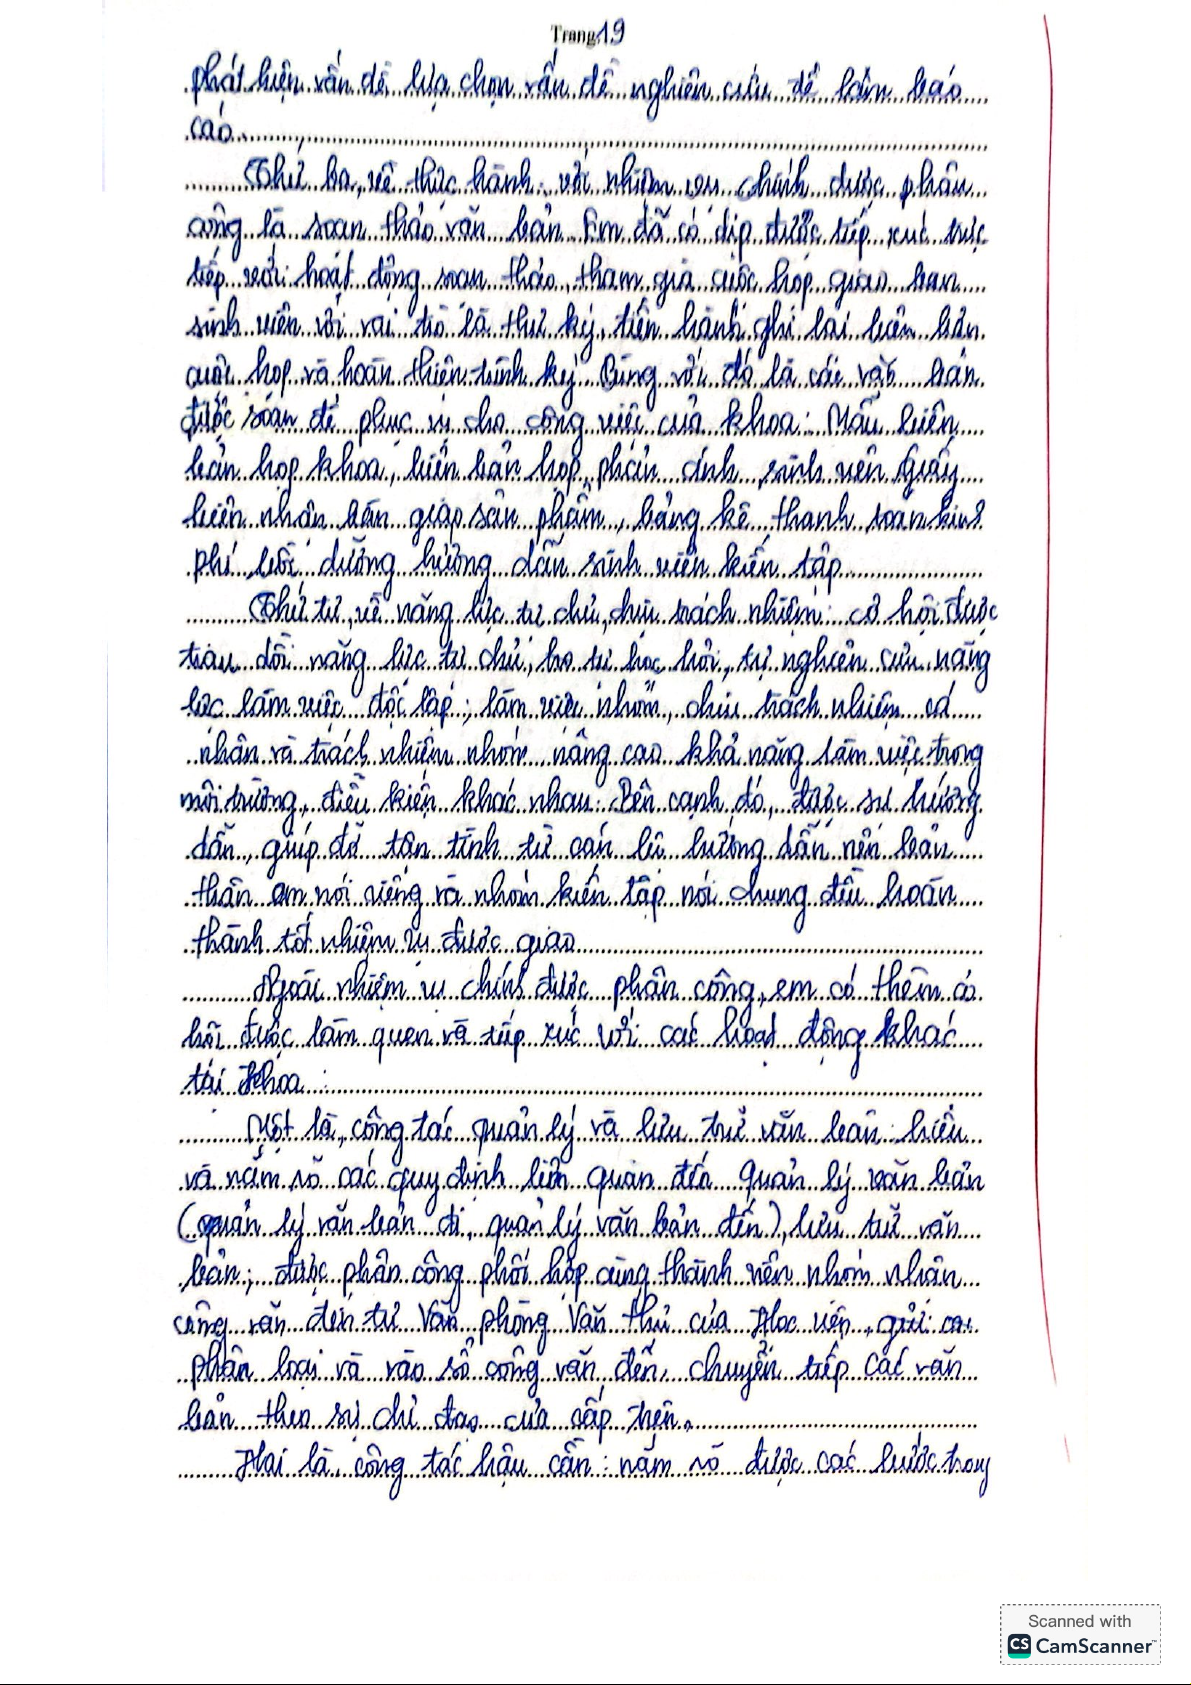 Trang 19
phát hiện vấn đề, lựa chọn vấn đề nghiên cứu để làm báo
cáo.
Thứ ba, về thực hành: với nhiệm vụ chính được phân
công là soạn thảo văn bản. Em đã có dịp được tiếp xúc trực
tiếp với hoạt động soạn thảo, tham gia cuộc họp giao ban
sinh viên với vai trò là thư ký, tiến hành ghi lại biên bản
cuộc họp và hoàn thiện trình ký. Cùng với đó là các văn bản
được soạn để phục vụ cho công việc của khoa: Mẫu biên
bản họp khoa, biên bản họp phản ánh sinh viên, Giấy
biên nhận bàn giao sản phẩm, bảng kê thanh toán kinh
phí bồi dưỡng hướng dẫn sinh viên kiến tập
Thứ tư, về năng lực tự chủ, chịu trách nhiệm: cơ hội được
trau dồi năng lực tự chủ, tự học hỏi, tự nghiên cứu, năng
lực làm việc độc lập; làm việc nhóm, chịu trách nhiệm cá
nhân và trách nhiệm nhóm nâng cao khả năng làm việc trong
môi trường, điều kiện khác nhau. Bên cạnh đó, được sự hướng
dẫn, giúp đỡ tận tình từ cán bộ hướng dẫn nên bản
thân em nói riêng và nhóm kiến tập nói chung đều hoàn
thành tốt nhiệm vụ được giao
Ngoài nhiệm vụ chính được phân công, em có thêm cơ
hội được làm quen và tiếp xúc với các hoạt động khác
tại Khoa:
Một là, công tác quản lý và lưu trữ văn bản: hiểu
và nắm rõ các quy định liên quan đến quản lý văn bản
(quản lý văn bản đi, quản lý văn bản đến), lưu trữ văn
bản; được phân công phối hợp cùng thành viên nhóm nhận
công văn đến từ Văn phòng Văn thư của Học viện, gửi các
phân loại và vào sổ công văn đến, chuyển tiếp các văn
bản theo sự chỉ đạo của cấp trên.
Hai là, công tác hậu cần: nắm rõ được các bước trong
Scanned with
CS CamScanner